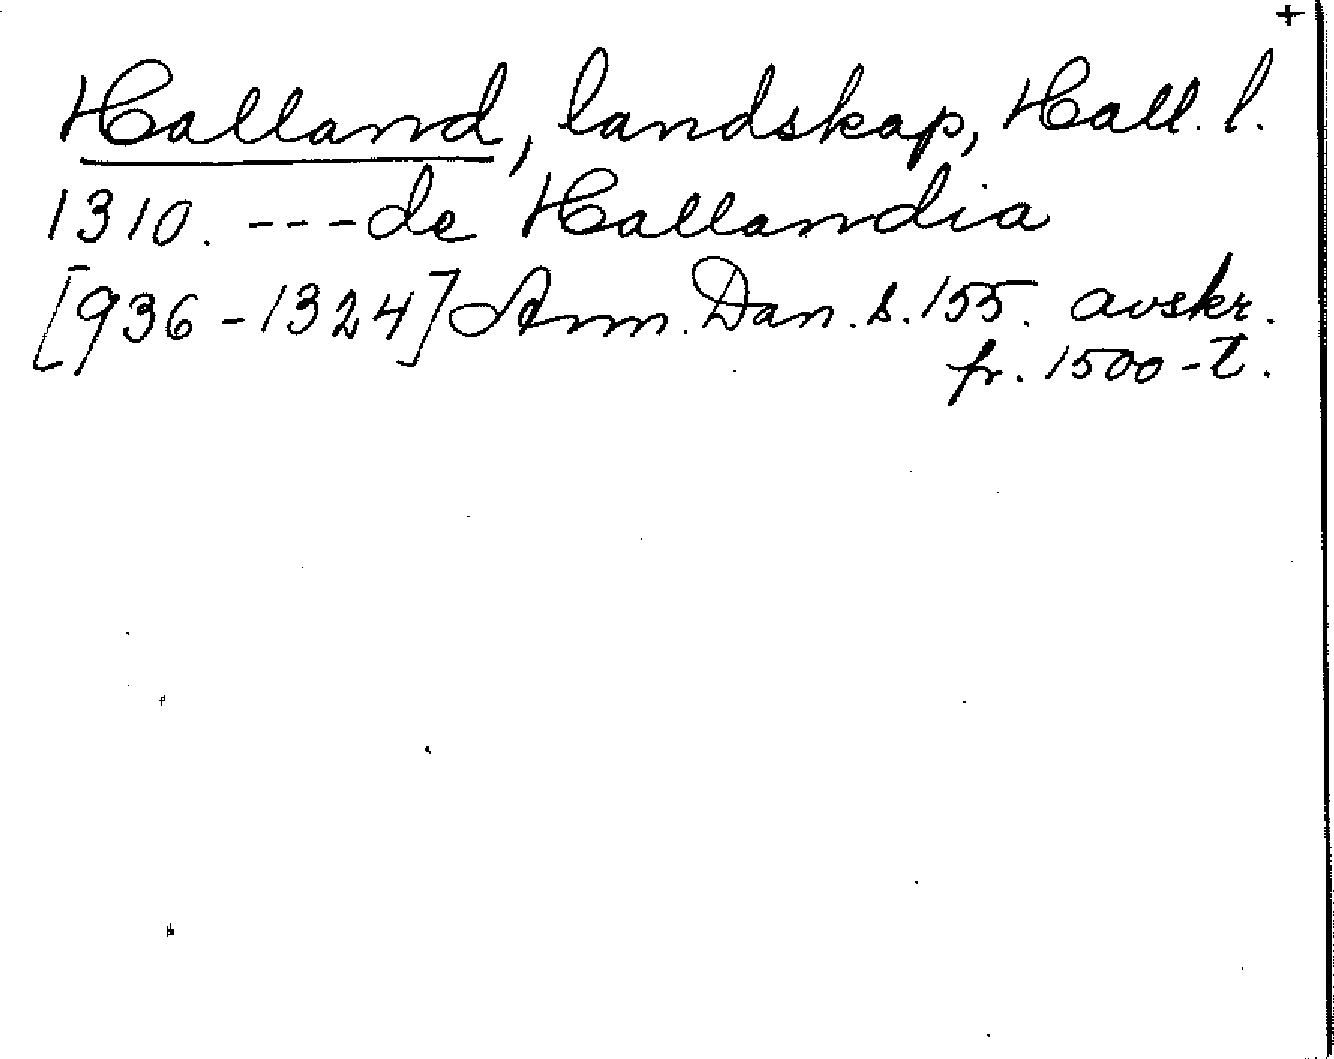 +
Halland, landskap, Hall. l.
1310. ---de Hallandia
[936-1324] Ann. Dan. s. 155. avskr.
fr. 1500-t.